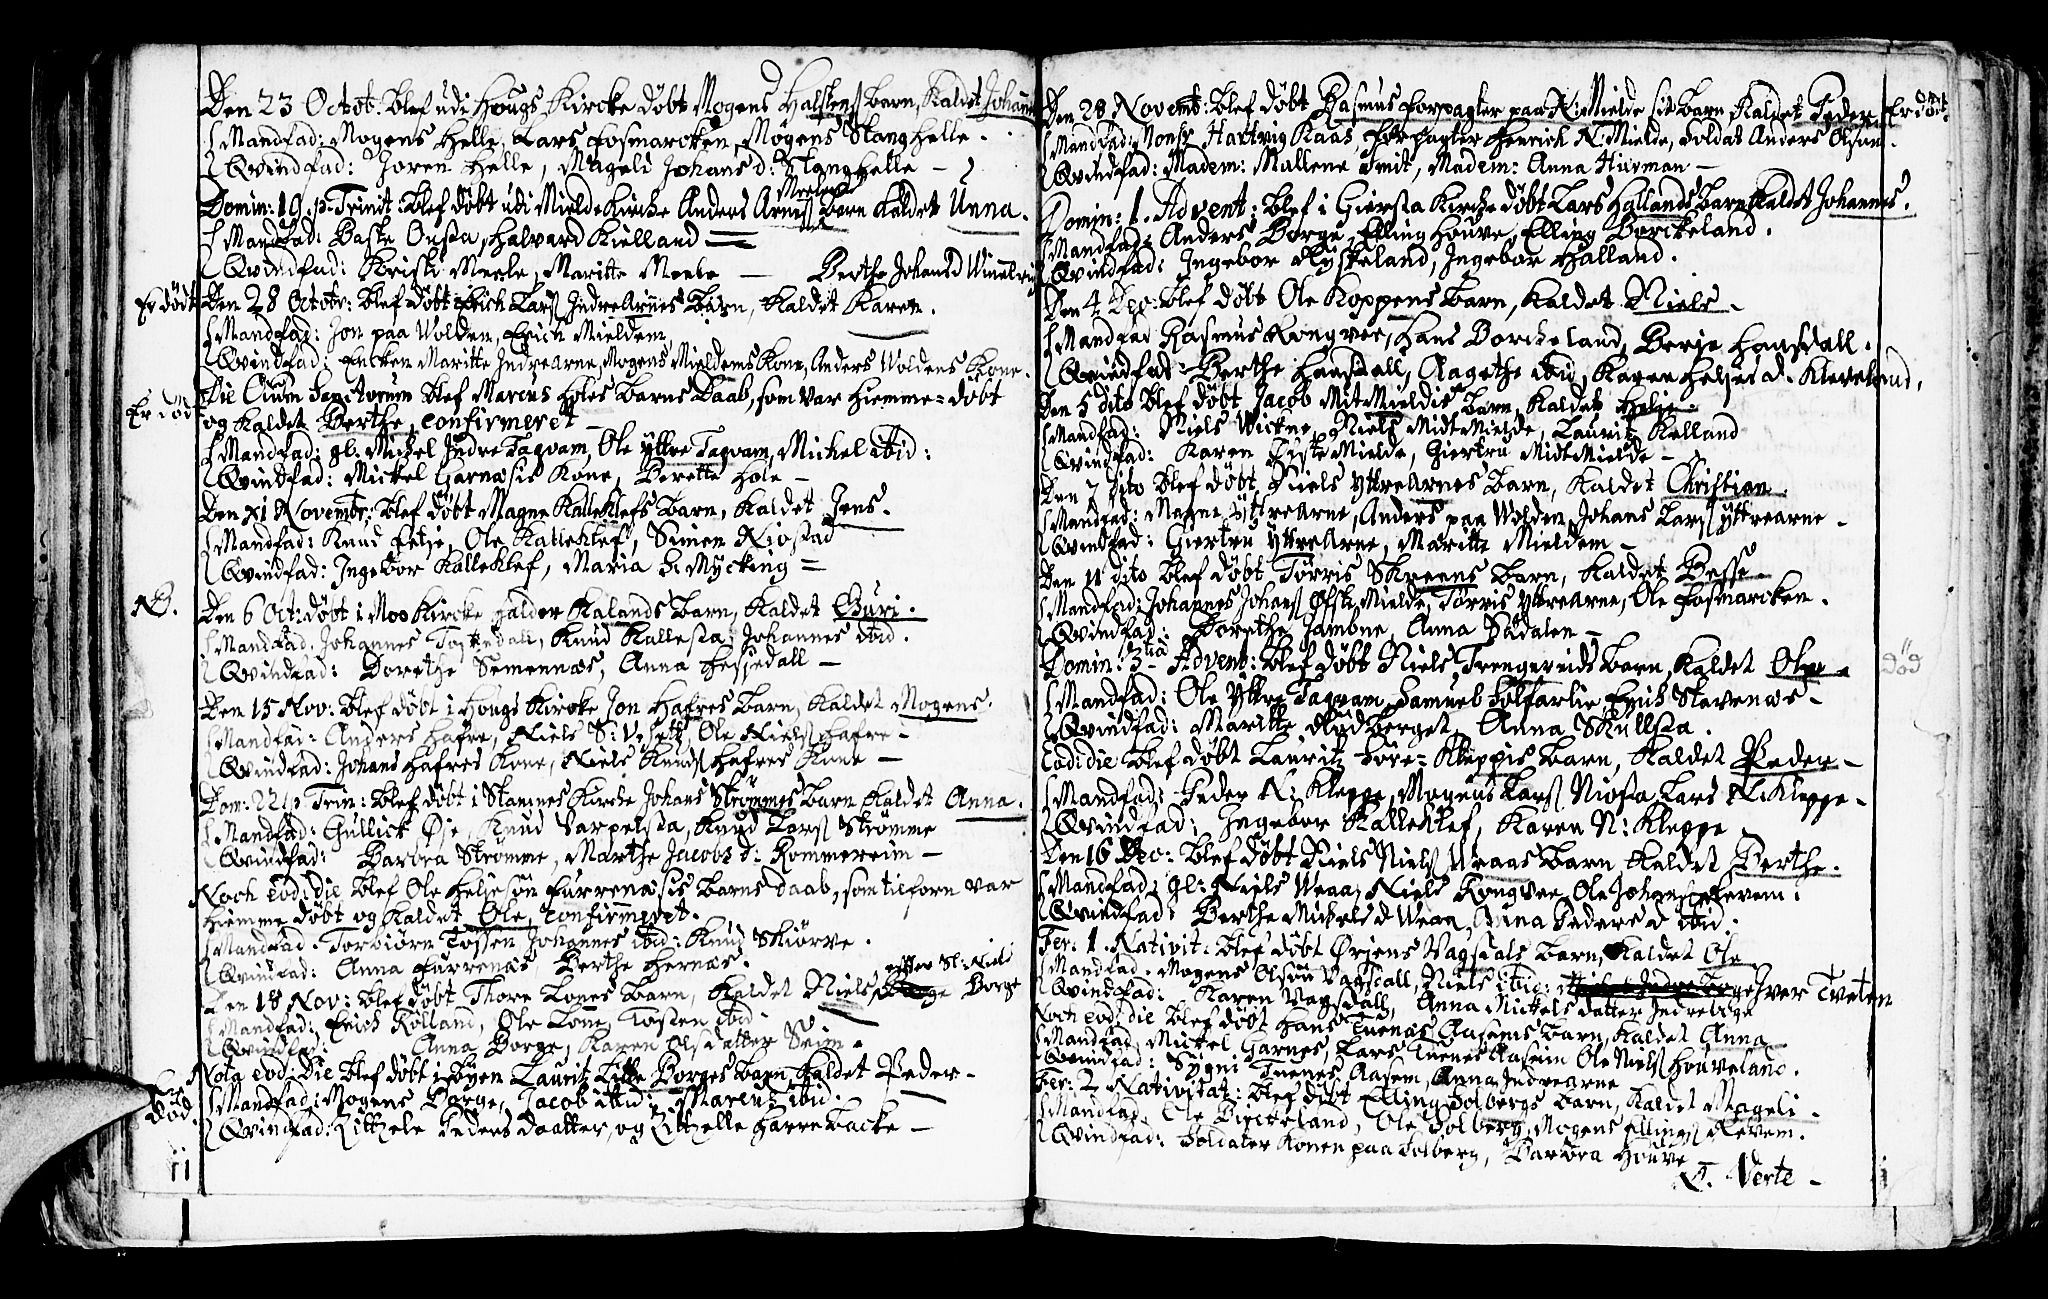 Den 23 Octob: blef udi Hougs Kircke døbt Mogens Halstens barn, kaldet Johannes
Mandfad: Mogens Helle, Lars Fosmarcken, Mogens Stanghelle.
Qvindfad: Joren Helle, Mageli Johans d: Stanghelle
Domin: 19. p. Trinit: blef døbt udi Mielde Kircke Anders Arnis barn kaldet Unna.
Mandfad: Baste Ousta, Halvard Kielland
Qvindfad: Kristi Meele, Maritte Meele Berthe Johans D
Er død Den 28 Octobr: blef døbt Erich Lars Indre Arnes barn, kaldet Karen.
Mandfad: Jon paa Volden, Erich Mieldem
Qvindfad: Encken Maritte Indrearne, Mogens Mieldems Kone, Anders Voldens Kone.
Die blef Marcus Holes barns daab, som var hiemme-døbt
Er død og kaldet Berthe, confirmeret
Mandfad: gl: Mickel Indre Taqvam, Ole Yttre Taqvam, Mickel ibid:
Qvindfad: Mickel Garnæsis Kone, Berette Hole
Den 11 Novembr: blef døbt Magne Kalleklefs barn, kaldet Jens.
Mandfad: Knud Fetje, Ole Kalleklef, Simen Niostad
Qvindfad: Ingebor Kalleklef, Maria S. Mycking
NB. Den 6 Oct: døbt i Moo Kircke Halvor Kalands barn, kaldet Guri.
Mandfad: Johannes Toskedall, Knud Kallesta, Johannes ibid.
Qvindfad: Dorethe Semennæs, Anna Hessedall
Den 15 Nov: blef døbt i Hougs Kircke Jon Hafres barn, kaldet Mogens.
Mandfad: Anders Hafre, Niels S: Ole Niels Hafre
Qvindfad: Johans Hafres Kone, Niels Knuds Hafres Kone
Dom: 22 p Trin: blef døbt i Stamnes Kircke Johans Strømmes barn kaldet Anna.
Mandfad: Gullick Øie, Knud Varpelsta, Knud Lars Strømme
Qvindfad: Barbra Strømme, Marthe Jacobs d: Rommereim
Noch eod: die blef Ole Heljesøn Furrenæsis barns daab, som tilforn var
hiemme døbt og kaldet Ole, confirmeret.
Mandfad. Torbiørn Tossen Johannes ibid: Knud Skiørve.
Qvindfad: Anna Furrenæs, Berthe Hernæs.
Den 18 Nov: blef døbt Thore Lones barn, kaldet Niels efter Sl: Niels Borge
Mandfad: Erich Rolland, Ole Lone, Tosten ibid.
Qvindfad: Anna Borge, Karen Olsdatter Seim.
Nota eod: Die blef døbt i byen Lauritz Lille Borges barn kaldet Peder
Mandfad: Mogens Borge, Jacob ibid: Marcus ibid.
død Qvindfad: Zitzele Peders daatter, og Zitzelle Harrebacke
Den 28 Novemb: blef døbt Rasmus Forpagter paa N: Mielde sit barn kaldet Peder. Er død.
Mandfad: Monsr Hartvig Kaas, Forpagter Henrich N. Mielde, Soldat Anders Olsen.
Qvindfad: Madem: Mallene Smit, Madem: Anna Hurman
Domin: 1. Advent: blef i Giersta Kircke døbt Lars Hallands barn kaldet Johannes.
Mandfad: Anders Borge, Elling Houve, Elling Borckeland.
Qvindfad: Ingebor Ryskeland, Ingebor Halland.
Den 4 Dec: blef døbt Ole Koppens barn, kaldet Niels
Mandfad Rasmus Kongvee, Hans Borckeland, Berje Hansdall.
Qvindfad: Berthe Hansdall, Aagethe ibid, Karen Heljes d. Kleveland.
Den 5 dito blef døbt Jacob MitMieldis barn, kaldet Helje
Mandfad: Niels Wickne, Niels MidtMielde, Lauritz Kelland
Qvindfad: Karen Øfste Mielde, Giertru MidtMielde
Den 7 dito blef døbt Niels Yttrearnes barn, kaldet Christian
Mandfad: Magne Yttrearne, Anders paa Volden, Johans Lars Yttrearne
Qvindfad: Giertru Yttrearne, Maritte Mieldem
Den 11 dito blef døbt Tørris Skreens barn, kaldet Besse
Mandfad: Johannes Johans Øfste Mielde, Tørris Yttrearne, Ole Fosmarcken.
Qvindfad: Dorethe Jambne, Anna Sædalen
Domin: 3tia Advent: blef døbt Niels Trengereids barn, kaldet Ole død
Mandfad: Ole Yttre Taqvam, Samuel Solfarlie, Erich Stavenæs
Qvindfad: Maritte Rødberget, Anna Skullsta.
Eodi die blef døbt Lauritz Søre-Kleppis barn, kaldet Peder
Mandfad: Peder N: Kleppe, Mogens Lars Niosta Lars N. Kleppe
Qvindfad: Ingebor Kalleklef, Karen N: Kleppe
Den 16 Dec: blef døbt Niels Niels Veaas barn kaldet Berthe.
Mandfad: gl: Niels Veaa, Niels Kongvee, Ole Johans Revem.
Qvindfad: Berthe Mickels d Veaa, Anna Peders d ibid.
Fer: 1. Nativit: blef døbt Ørjens Vagsdals barn, kaldet Ole
Mandfad. Mogens Olsøn Vagsdall, Niels ibid: Iver Tveten
Qvindfad: Karen Vagsdall, Anna Mickels datter Indrebøge
Noch eod: die blef døbt Hans Tuenæs Aasems barn, kaldet Anna
Mandfad Mickel Garnes, Lars Tuenes Aasem Ole Niels Houveland.
Qvindfad: Sygni Tuenes Aasem, Anna Indrearne
Fer: 2 Nativitat: blef døbt Elling Solbergs barn, kaldet Mageli.
Mandfad. Ole Birckeland, Ole Solberg, Mogens Ellings Revem.
Qvindfad: Soldater Konen paa Solberg, Barbra Houve
V. Verte